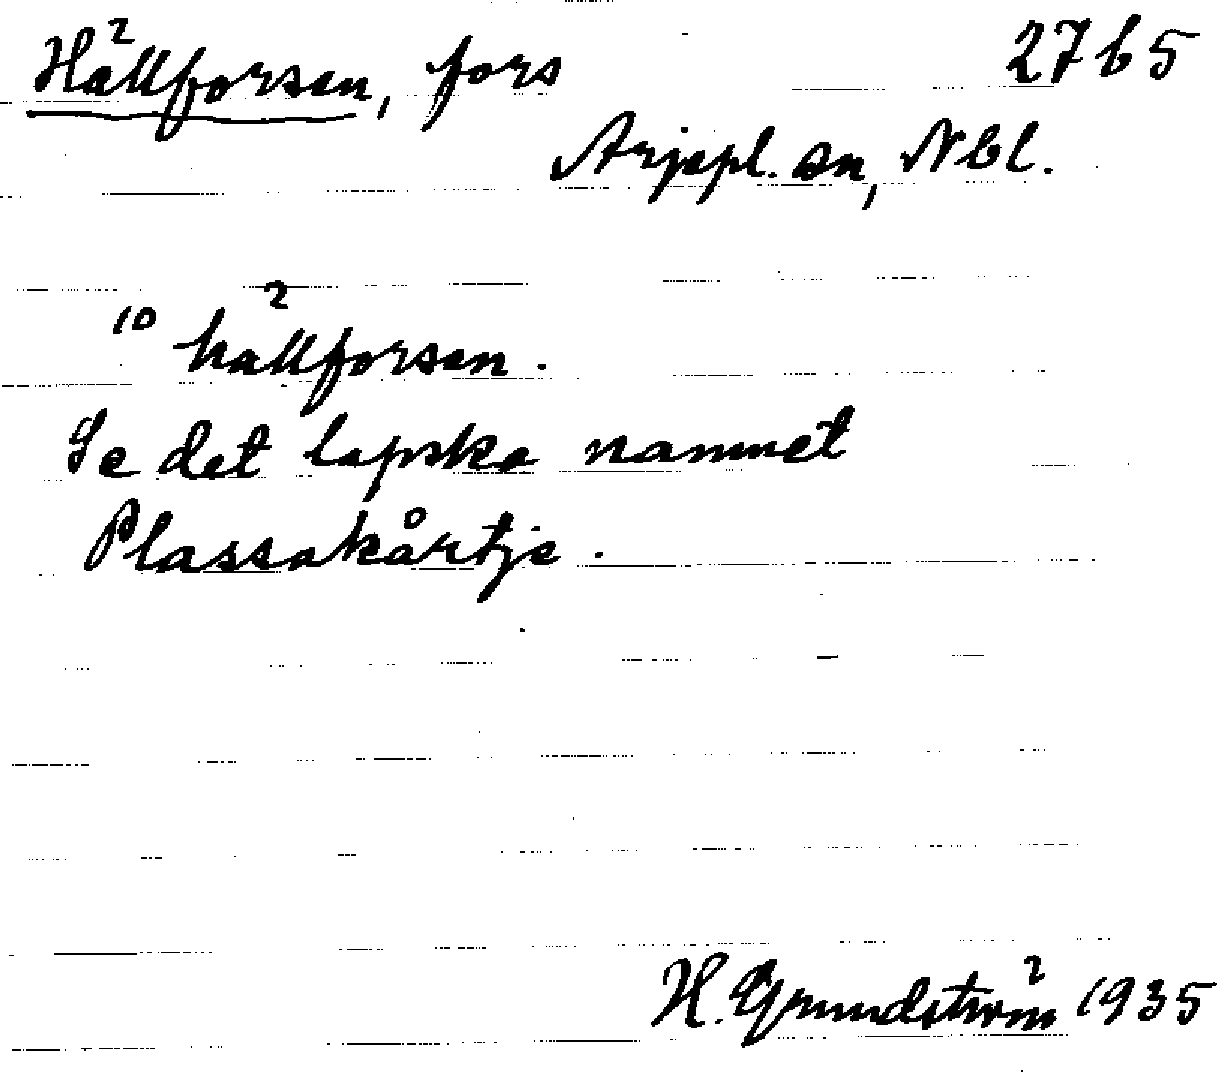 Hällforsen, fors 2765
Arjepl. sn, Nbl.
10 hällforsen.
Se det lapska namnet
Plassakårtje.
H. Grundström 1935